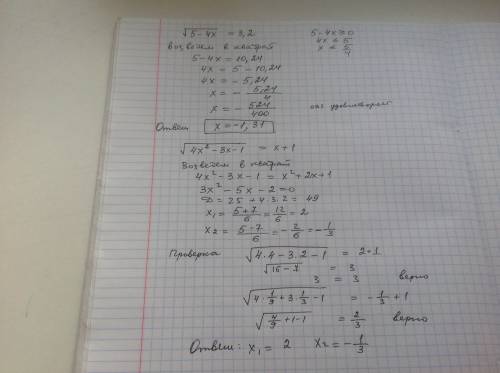 √5-4x = 3,2
5-4x ≥ 0
4x ≤ 5
x ≤ 5/4
Возведем в квадрат
5-4x = 10,24
4x = 5 - 10,24
4x = - 5,24
x = - 5,24/4
x = - 524/400
удовлетворяет
Ответ x = -1,31
√4x²-3x-1 = x+1
Возведем в квадрат
4x² - 3x - 1 = x² + 2x + 1
3x² - 5x - 2 = 0
D = 25 + 4·3·2 = 49
x₁ = 5+7/6 = 12/6 = 2
x₂ = 5-7/6 = - 2/6 = - 1/3
Проверка √4·4-3·2-1 = 2+1
√16-7 = 3
3 = 3 верно
√4·1/9+3·1/3-1 = - 1/3 + 1
√4/9+1-1 = 2/3 верно
Ответ: x₁ = 2 x₂ = - 1/3